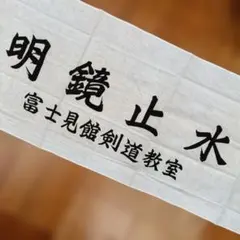 明鏡止水
富士見館剣道教室